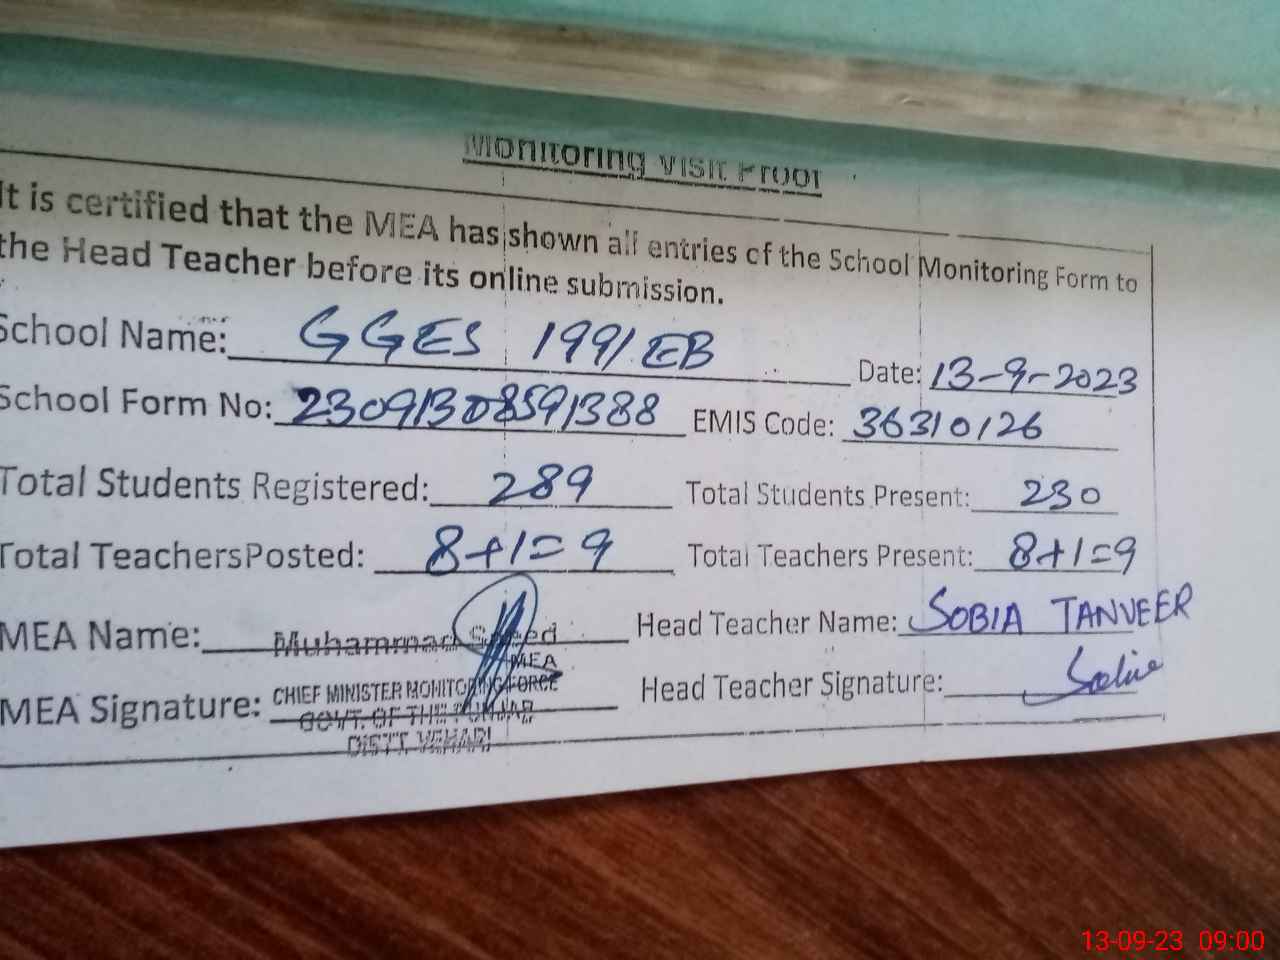 Monitoring Visit Proof
It is certified that the MEA has shown all entries of the School Monitoring Form to
the Head Teacher before its online submission.
School Name: GGES 199/EB Date: 13-9-2023
School Form No: 23091308591388 EMIS Code: 36310126
Total Students Registered: 289 Total Students Present: 230
Total TeachersPosted: 8+1=9 Total Teachers Present: 8+1=9
MEA Name: Muhammad Saeed Head Teacher Name: SOBIA TANVEER
MEA
MEA Signature: CHIEF MINISTER MONITORING FORCE Head Teacher Signature: Sobia
GOVT. OF THE PUNJAB
DISTT. VEHARI
13-09-23 09:00